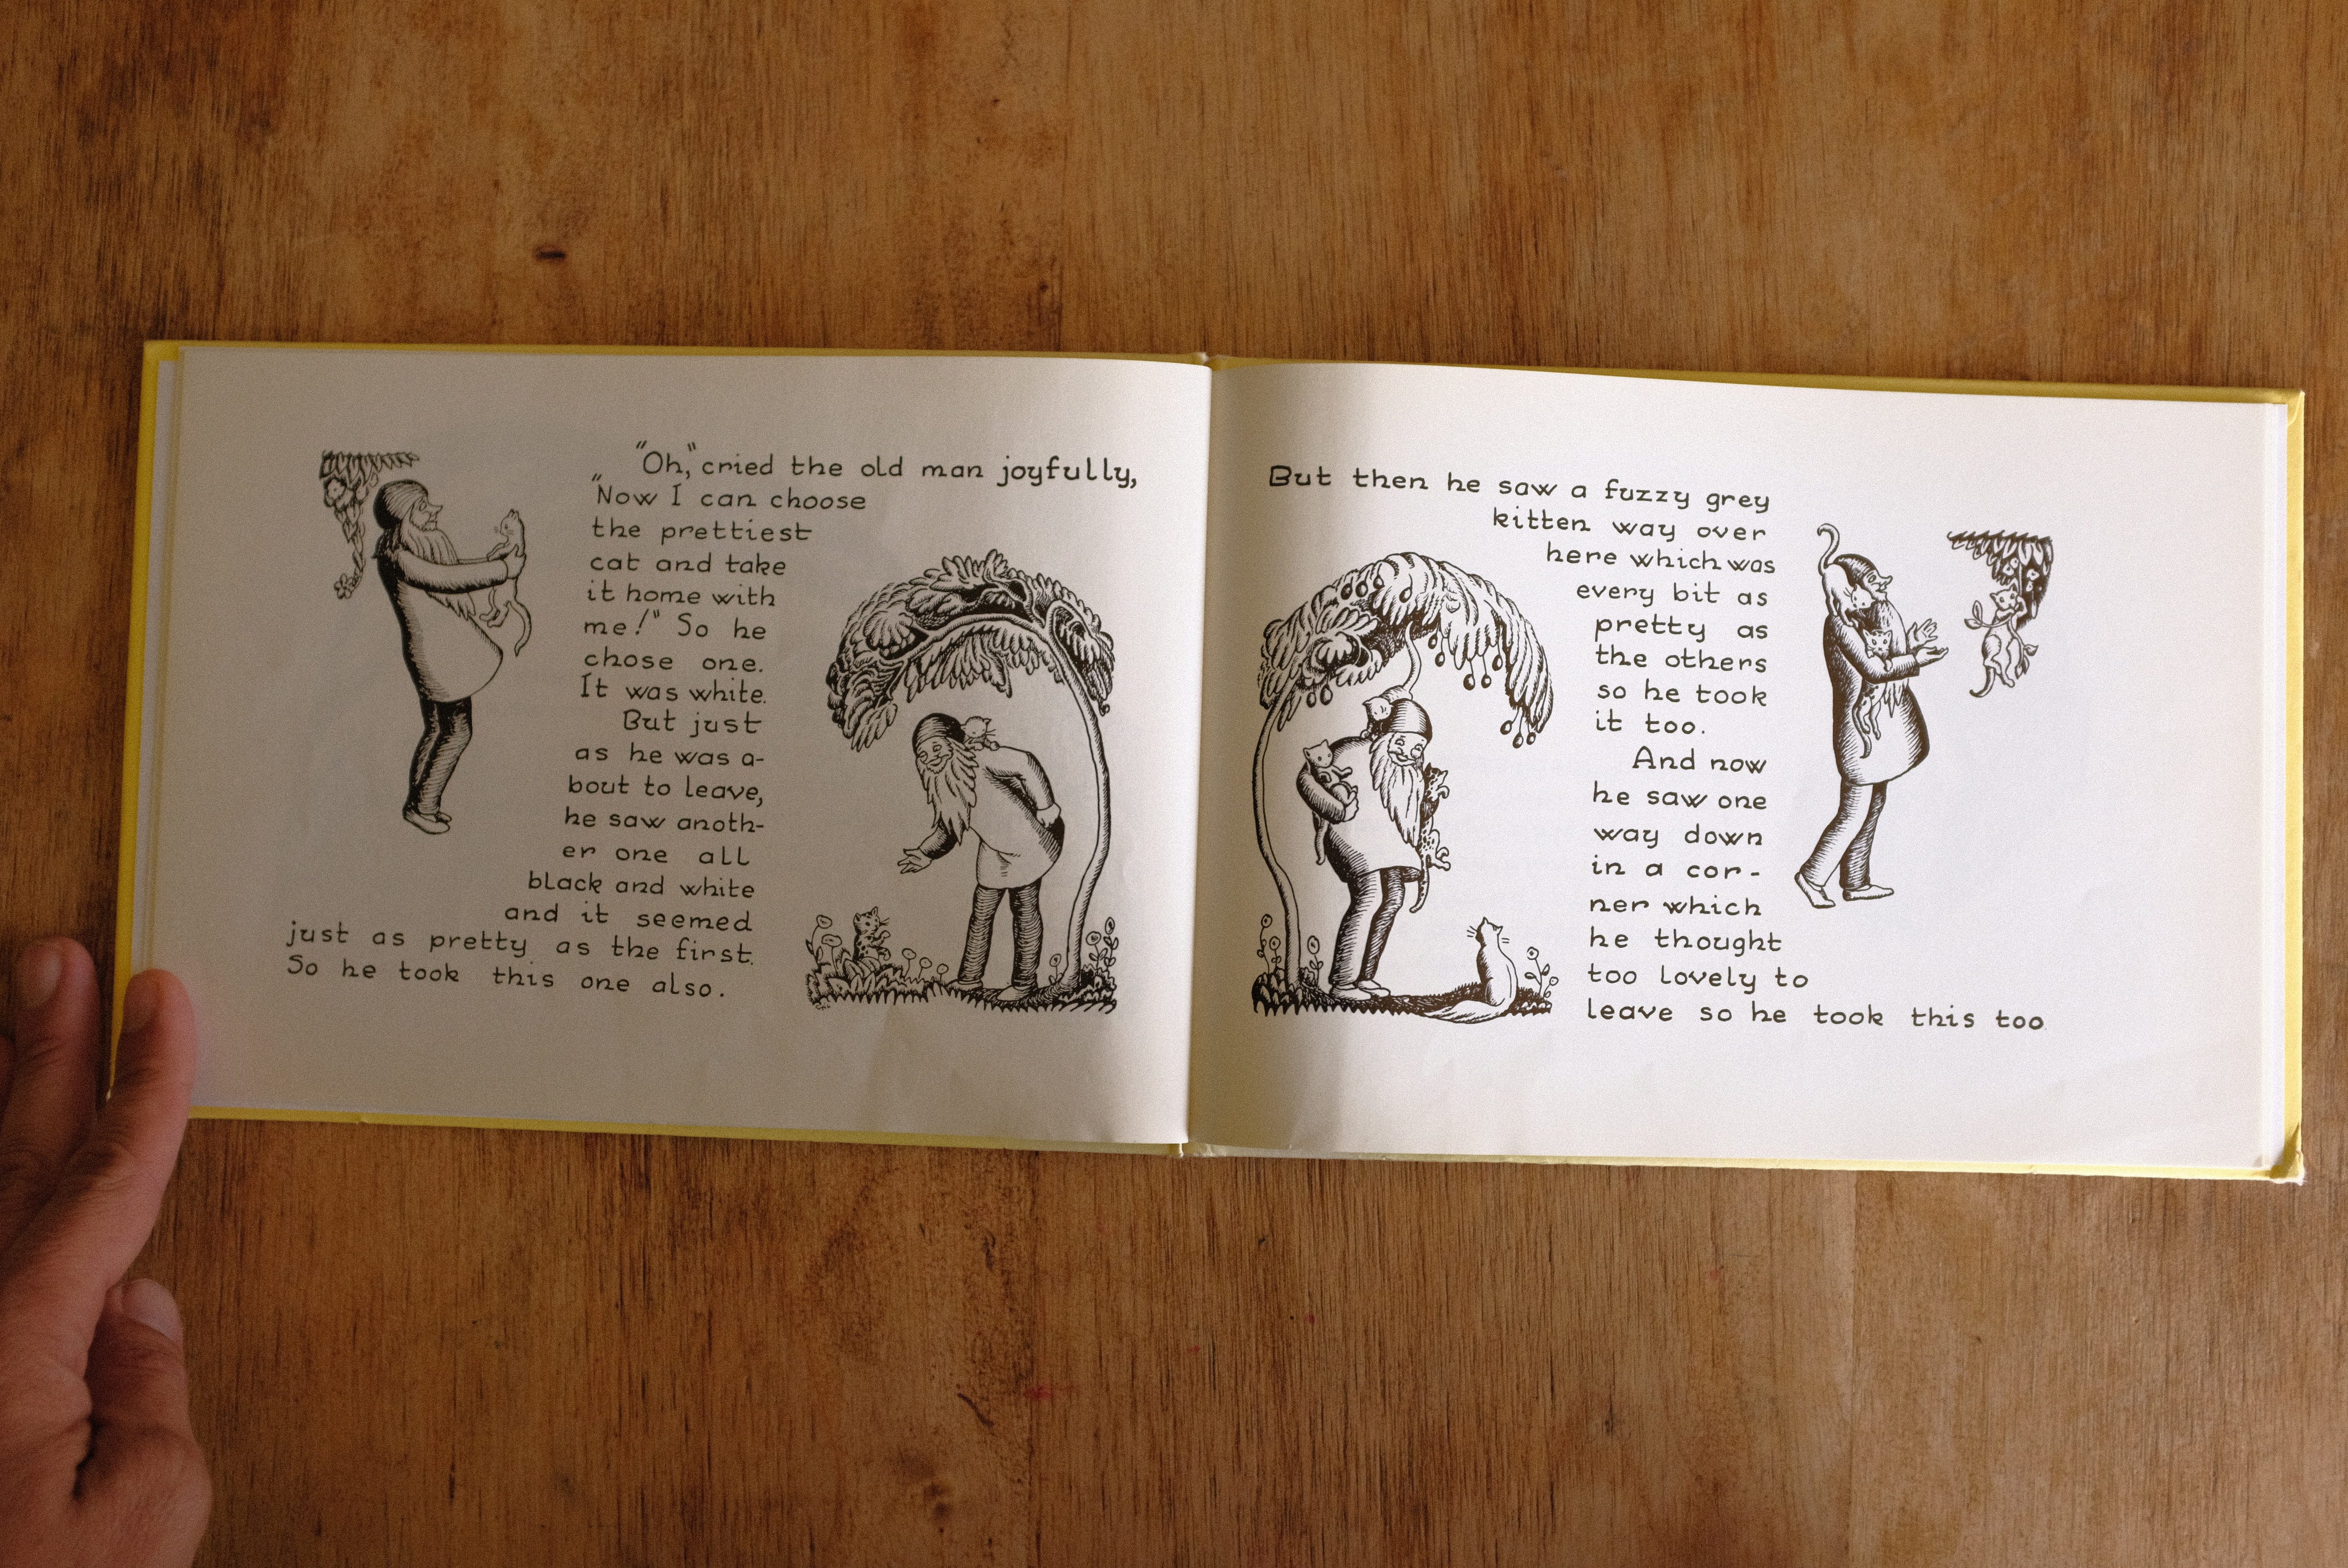 "Oh," cried the old man joyfully,
"Now I can choose
the prettiest
cat and take
it home with
me!" So he
chose one.
It was white.
But just
as he was a-
bout to leave,
he saw anoth-
er one all
black and white
and it seemed
just as pretty as the first.
So he took this one also.
But then he saw a fuzzy grey
kitten way over
here which was
every bit as
pretty as
the others
so he took
it too.
And now
he saw one
way down
in a cor-
ner which
he thought
too lovely to
leave so he took this too